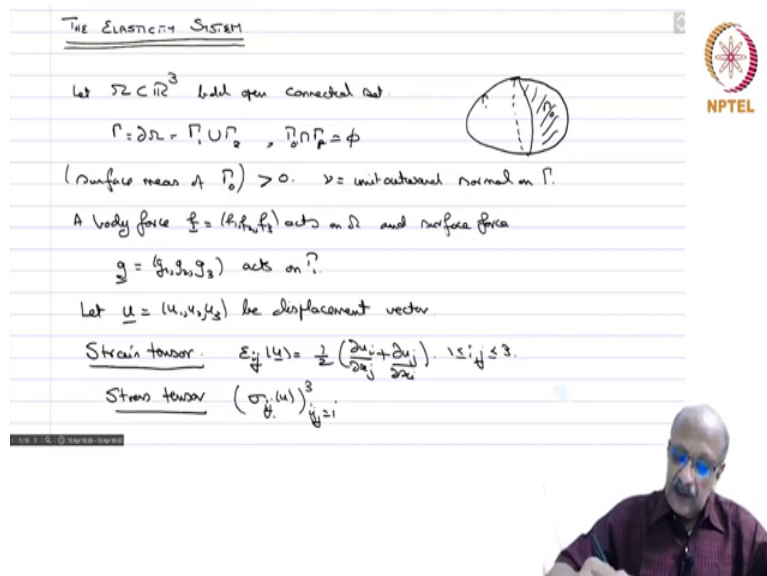 THE ELASTICITY SYSTEM.
NPTEL
Let Ω ⊂ ℝ³ bdd open connected set.
Γ = ∂Ω = Γ₁ ∪ Γ₂ , Γ₀ ∩ Γ₁ = ϕ
(surface meas of Γ₀) > 0. ν = unit outward normal on Γ.
A body force f = (f₁,f₂,f₃) acts on Ω and surface force
g = (g₁,g₂,g₃) acts on Γ₁
Let u = (u₁,u₂,u₃) be displacement vector.
Strain tensor. εᵢⱼ(u) = 1/2 (∂uᵢ/∂xⱼ + ∂uⱼ/∂xᵢ). 1≤i,j≤3.
Stress tensor (σᵢⱼ(u))³ᵢ,ⱼ₌₁